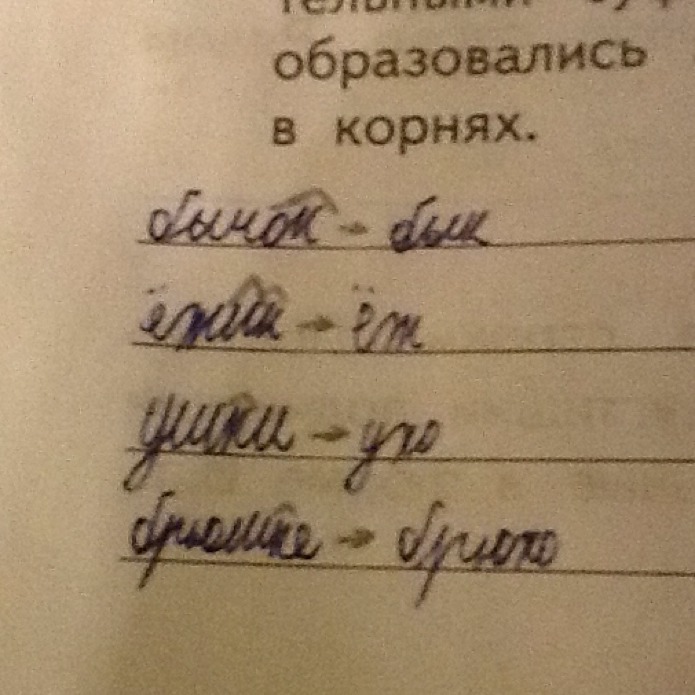 тельными суф
образовались
в корнях.
бычок - бык
ёжик → ёж
ушки → ухо
брюшке → брюхо